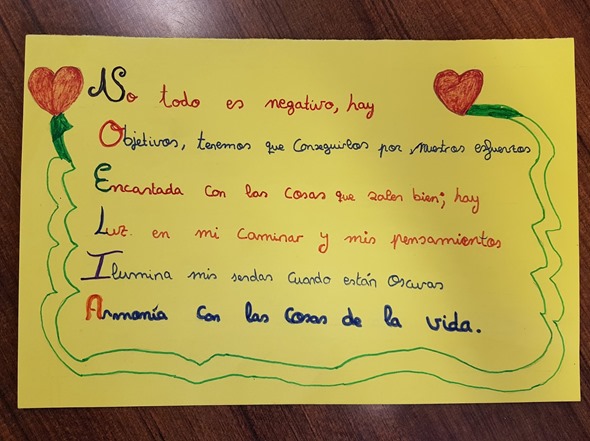 No todo es negativo, hay
Objetivos, tenemos que conseguirlos por nuestros esfuerzos
Encantada con las cosas que salen bien; hay
Luz en mi caminar y mis pensamientos
Ilumina mis sendas cuando están oscuras
Armonía con las cosas de la vida.